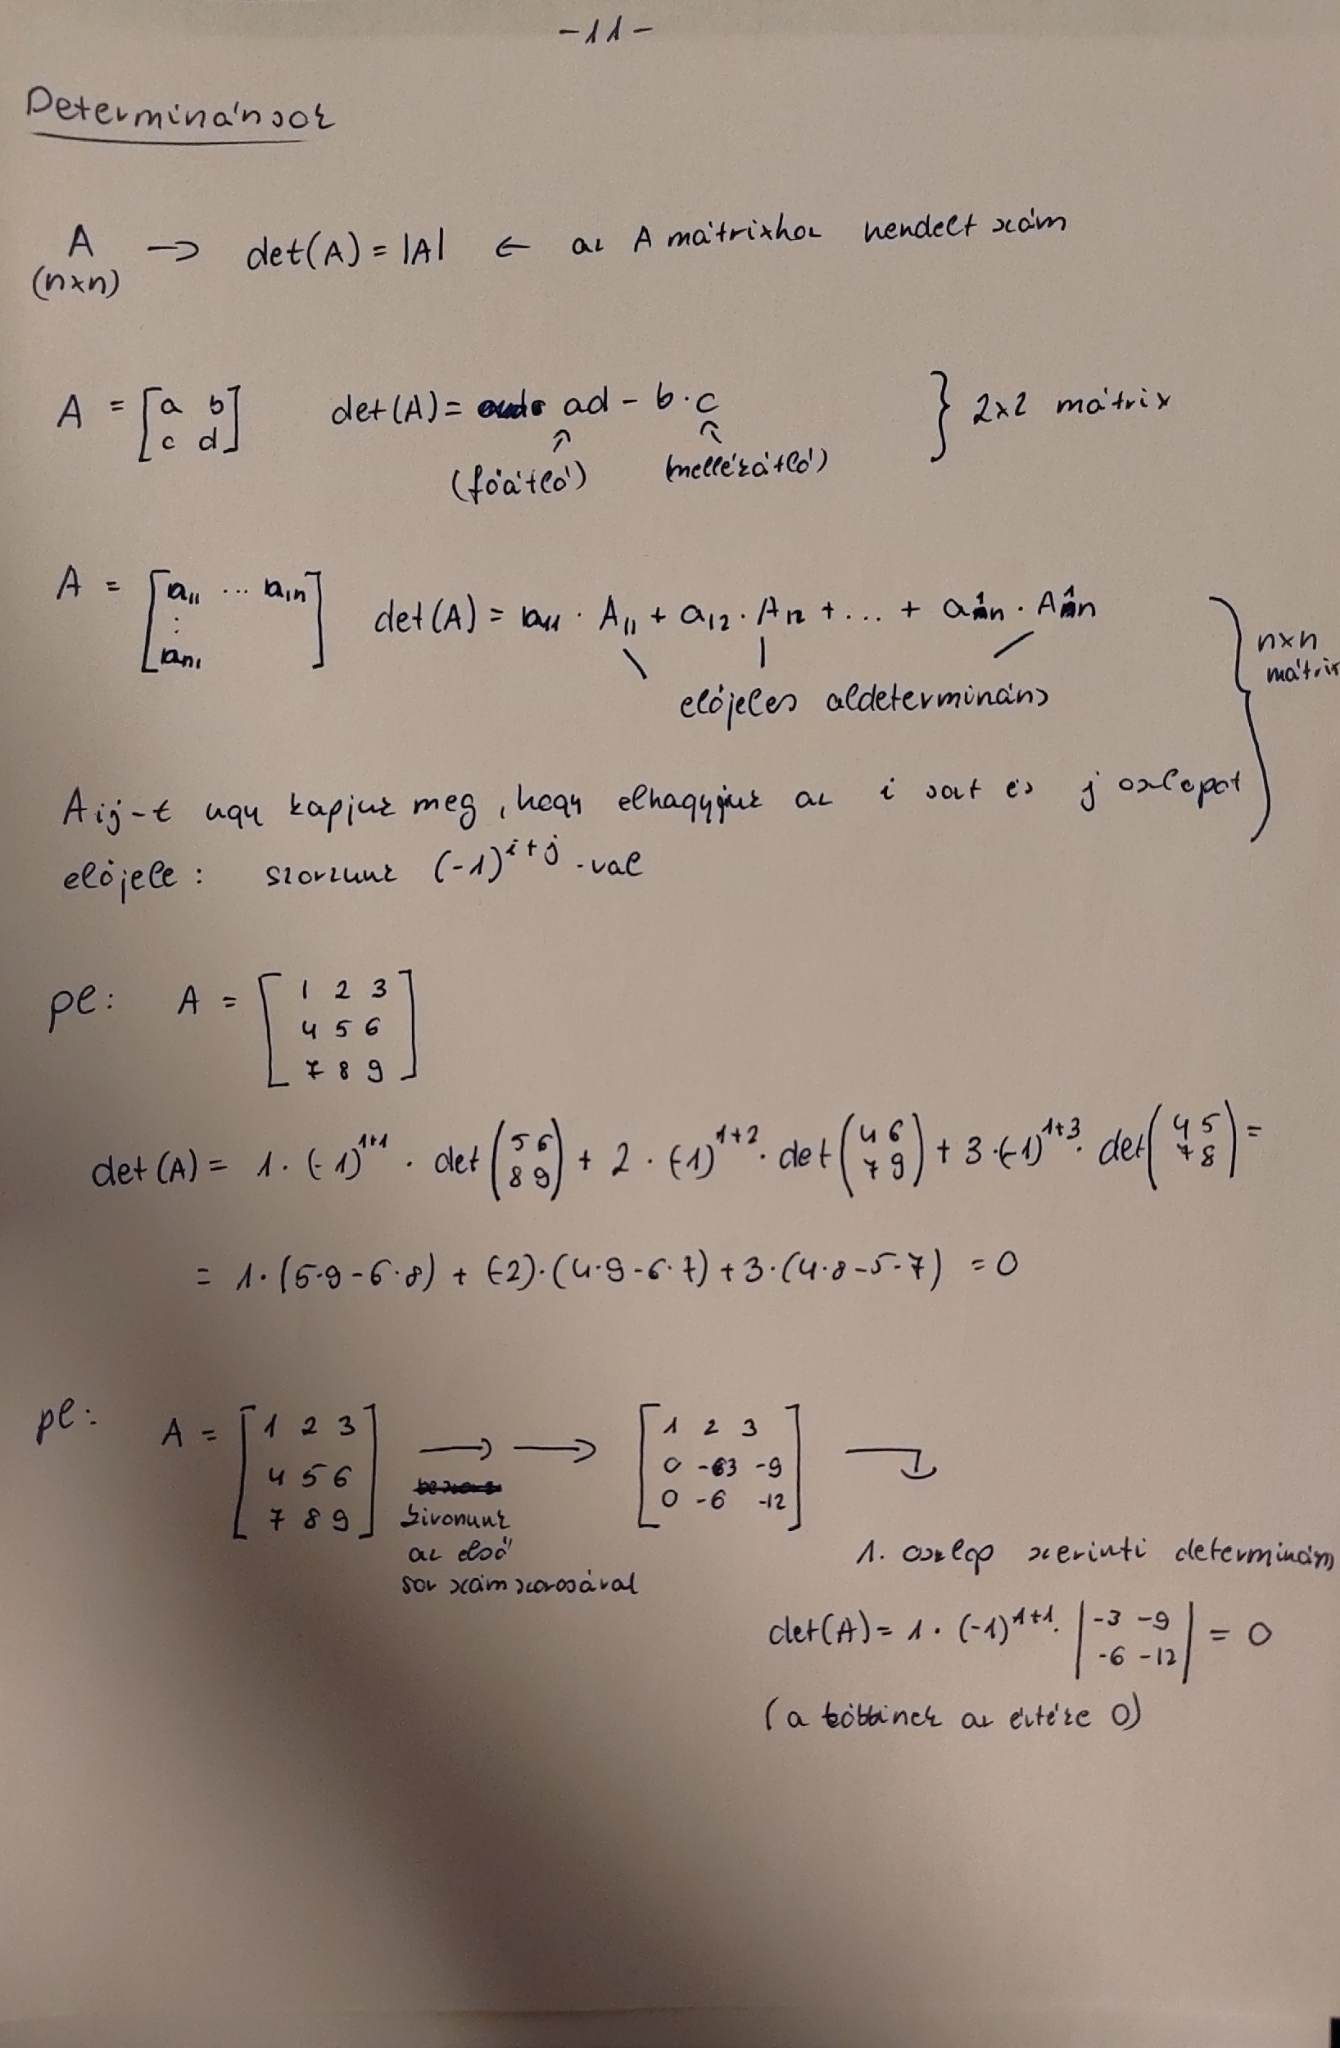 -11-
Determinánsok
A → det(A) = |A| ← az A mátrixhoz rendelt szám
(n×n)
A = [a b; c d] det(A) = ad - b·c } 2×2 mátrix
(főátló) (mellékátló)
A = [a₁₁ ... a₁n; ⋮; an₁] det(A) = a₁₁ · A₁₁ + a₁₂ · A₁₂ + ... + a₁n · A₁n } n×n mátrix
előjeles aldetermináns
Aij-t úgy kapjuk meg, hogy elhagyjuk az i sort és j oszlopot
előjele: szorzunk (-1)^(i+j)-val
pl: A = [1 2 3; 4 5 6; 7 8 9]
det(A) = 1·(-1)^(1+1) · det(5 6; 8 9) + 2·(-1)^(1+2) · det(4 6; 7 9) + 3·(-1)^(1+3) · det(4 5; 7 8) =
= 1·(5·9-6·8) + (-2)·(4·9-6·7) + 3·(4·8-5·7) = 0
pl: A = [1 2 3; 4 5 6; 7 8 9] → → [1 2 3; 0 -3 -9; 0 -6 -12]
kivonunk
az első
sor számszorosával
1. oszlop szerinti determináns
det(A) = 1·(-1)^(1+1) · |-3 -9; -6 -12| = 0
(a többinek az értéke 0)